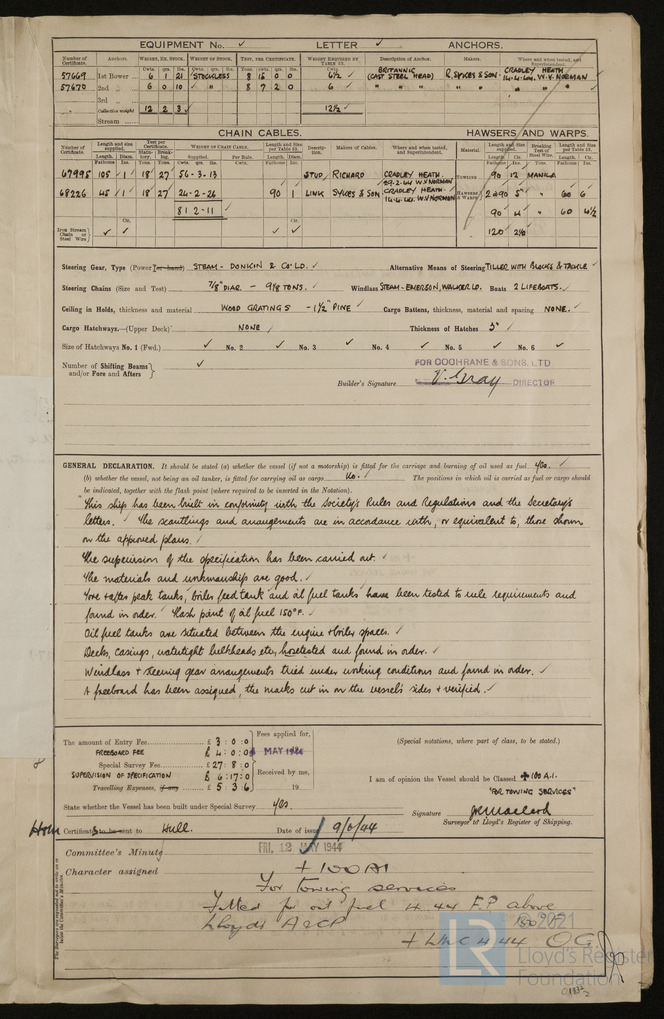 EQUIPMENT No. ✓ LETTER ✓ ANCHORS.
Number of Certificate. Anchors. Weight, Ex. Stock. Weight of Stock. Test, per Certificate. Weight Required by Table 53. Description of Anchor. Makers. Where and when tested, and Superintendent.
57669 1st Bower 6 1 21 STOCKLESS 8 15 0 0 6½ ✓ BRITANNIC (CAST STEEL HEAD) R. SYKES & SON. CRADLEY HEATH 14.4.44. W.V. NORMAN
57670 2nd " 6 0 10 " " 8 7 2 0 6 ✓ " " " " " " "
3rd "
Collective weight 12 2 3 12½ ✓
Stream
CHAIN CABLES. HAWSERS AND WARPS.
Number of Certificate. Length and size supplied. Test per Certificate. Weight of Chain Cable. Length and Size per Table 53. Description. Makers of Cables. Where and when tested, and Superintendent. Material. Length and Size supplied. Breaking Test of Steel Wire. Length and size per Table 53.
67995 105 1 18 27 56-3-13 STUD RICHARD CRADLEY HEATH. 29.2.44 W.V NORMAN TOWLINE 90 12 MANILA
68226 45 1 18 27 24-2-26 90 1 LINK SYKES & SON CRADLEY HEATH 14.4.44. W.V NORMAN HAWSERS & WARPS 2@90 5" " 60 6
81 2-11 90 4" " 60 4½
Iron Stream Chain or Steel Wire 120 2½
Steering Gear, Type (Power or hand) STEAM - DONKIN & Co LD. ✓ Alternative Means of Steering TILLER WITH BLOCKS & TACKLE
Steering Chains (Size and Test) 7/8" DIAR - 9 1/8 TONS. ✓ Windlass STEAM-EMERSON, WALKER LD. Boats 2 LIFEBOATS. ✓
Ceiling in Holds, thickness and material WOOD GRATINGS - 1½" PINE ✓ Cargo Battens, thickness, material and spacing NONE. ✓
Cargo Hatchways.—(Upper Deck) NONE ✓ Thickness of Hatches 3" ✓
Size of Hatchways No. 1 (Fwd.) ✓ No. 2 ✓ No. 3 ✓ No. 4 ✓ No. 5 ✓ No. 6 ✓
Number of Shifting Beams and/or Fore and Afters ✓
FOR COCHRANE & SONS, LTD.
Builder's Signature V. Gray DIRECTOR
GENERAL DECLARATION. It should be stated (a) whether the vessel (if not a motorship) is fitted for the carriage and burning of oil used as fuel yes. ✓
(b) whether the vessel, not being an oil tanker, is fitted for carrying oil as cargo No. ✓ The positions in which oil is carried as fuel or cargo should
be indicated, together with the flash point (where required to be inserted in the Notation).
This ship has been built in conformity with the Society's Rules and Regulations and the Secretary's
letters. ✓ The scantlings and arrangements are in accordance with, or equivalent to, those shown
on the approved plans. ✓
The supervision of the specification has been carried out. ✓
The materials and workmanship are good. ✓
Fore & after peak tanks, boiler feed tank and oil fuel tanks have been tested to rule requirements and
found in order. ✓ Flash point of oil fuel 150°F. ✓
Oil fuel tanks are situated between the engine & boiler spaces. ✓
Decks, casings, watertight bulkheads etc, hosetested and found in order. ✓
Windlass & steering gear arrangements tried under working conditions and found in order. ✓
A freeboard has been assigned, the marks cut in on the vessel's sides & verified. ✓
The amount of Entry Fee £ 3 : 0 : 0 Fees applied for,
FREEBOARD FEE £ 4 : 0 : 0 MAY 1944
Special Survey Fee £27 : 8 : 0
SUPERVISION OF SPECIFICATION £ 6 : 17 : 0 Received by me,
Travelling Expenses, if any £ 5 : 3 : 6 19
(Special notations, where part of class, to be stated.)
I am of opinion the Vessel should be Classed ✠ 100 A.1.
"FOR TOWING SERVICES"
State whether the Vessel has been built under Special Survey yes.
Signature
Surveyor to Lloyd's Register of Shipping.
Certificate to be sent to Hull. Date of issue 9/6/44
Committee's Minute FRI. 12 MAY 1944
Character assigned + 100 A1
For Towing services
Fitted for oil fuel 4.44 F.P. above
150°F.
Lloyds A&CP
+ LMC 4.44 O.G.
© 2021
Lloyd's Register
Foundation